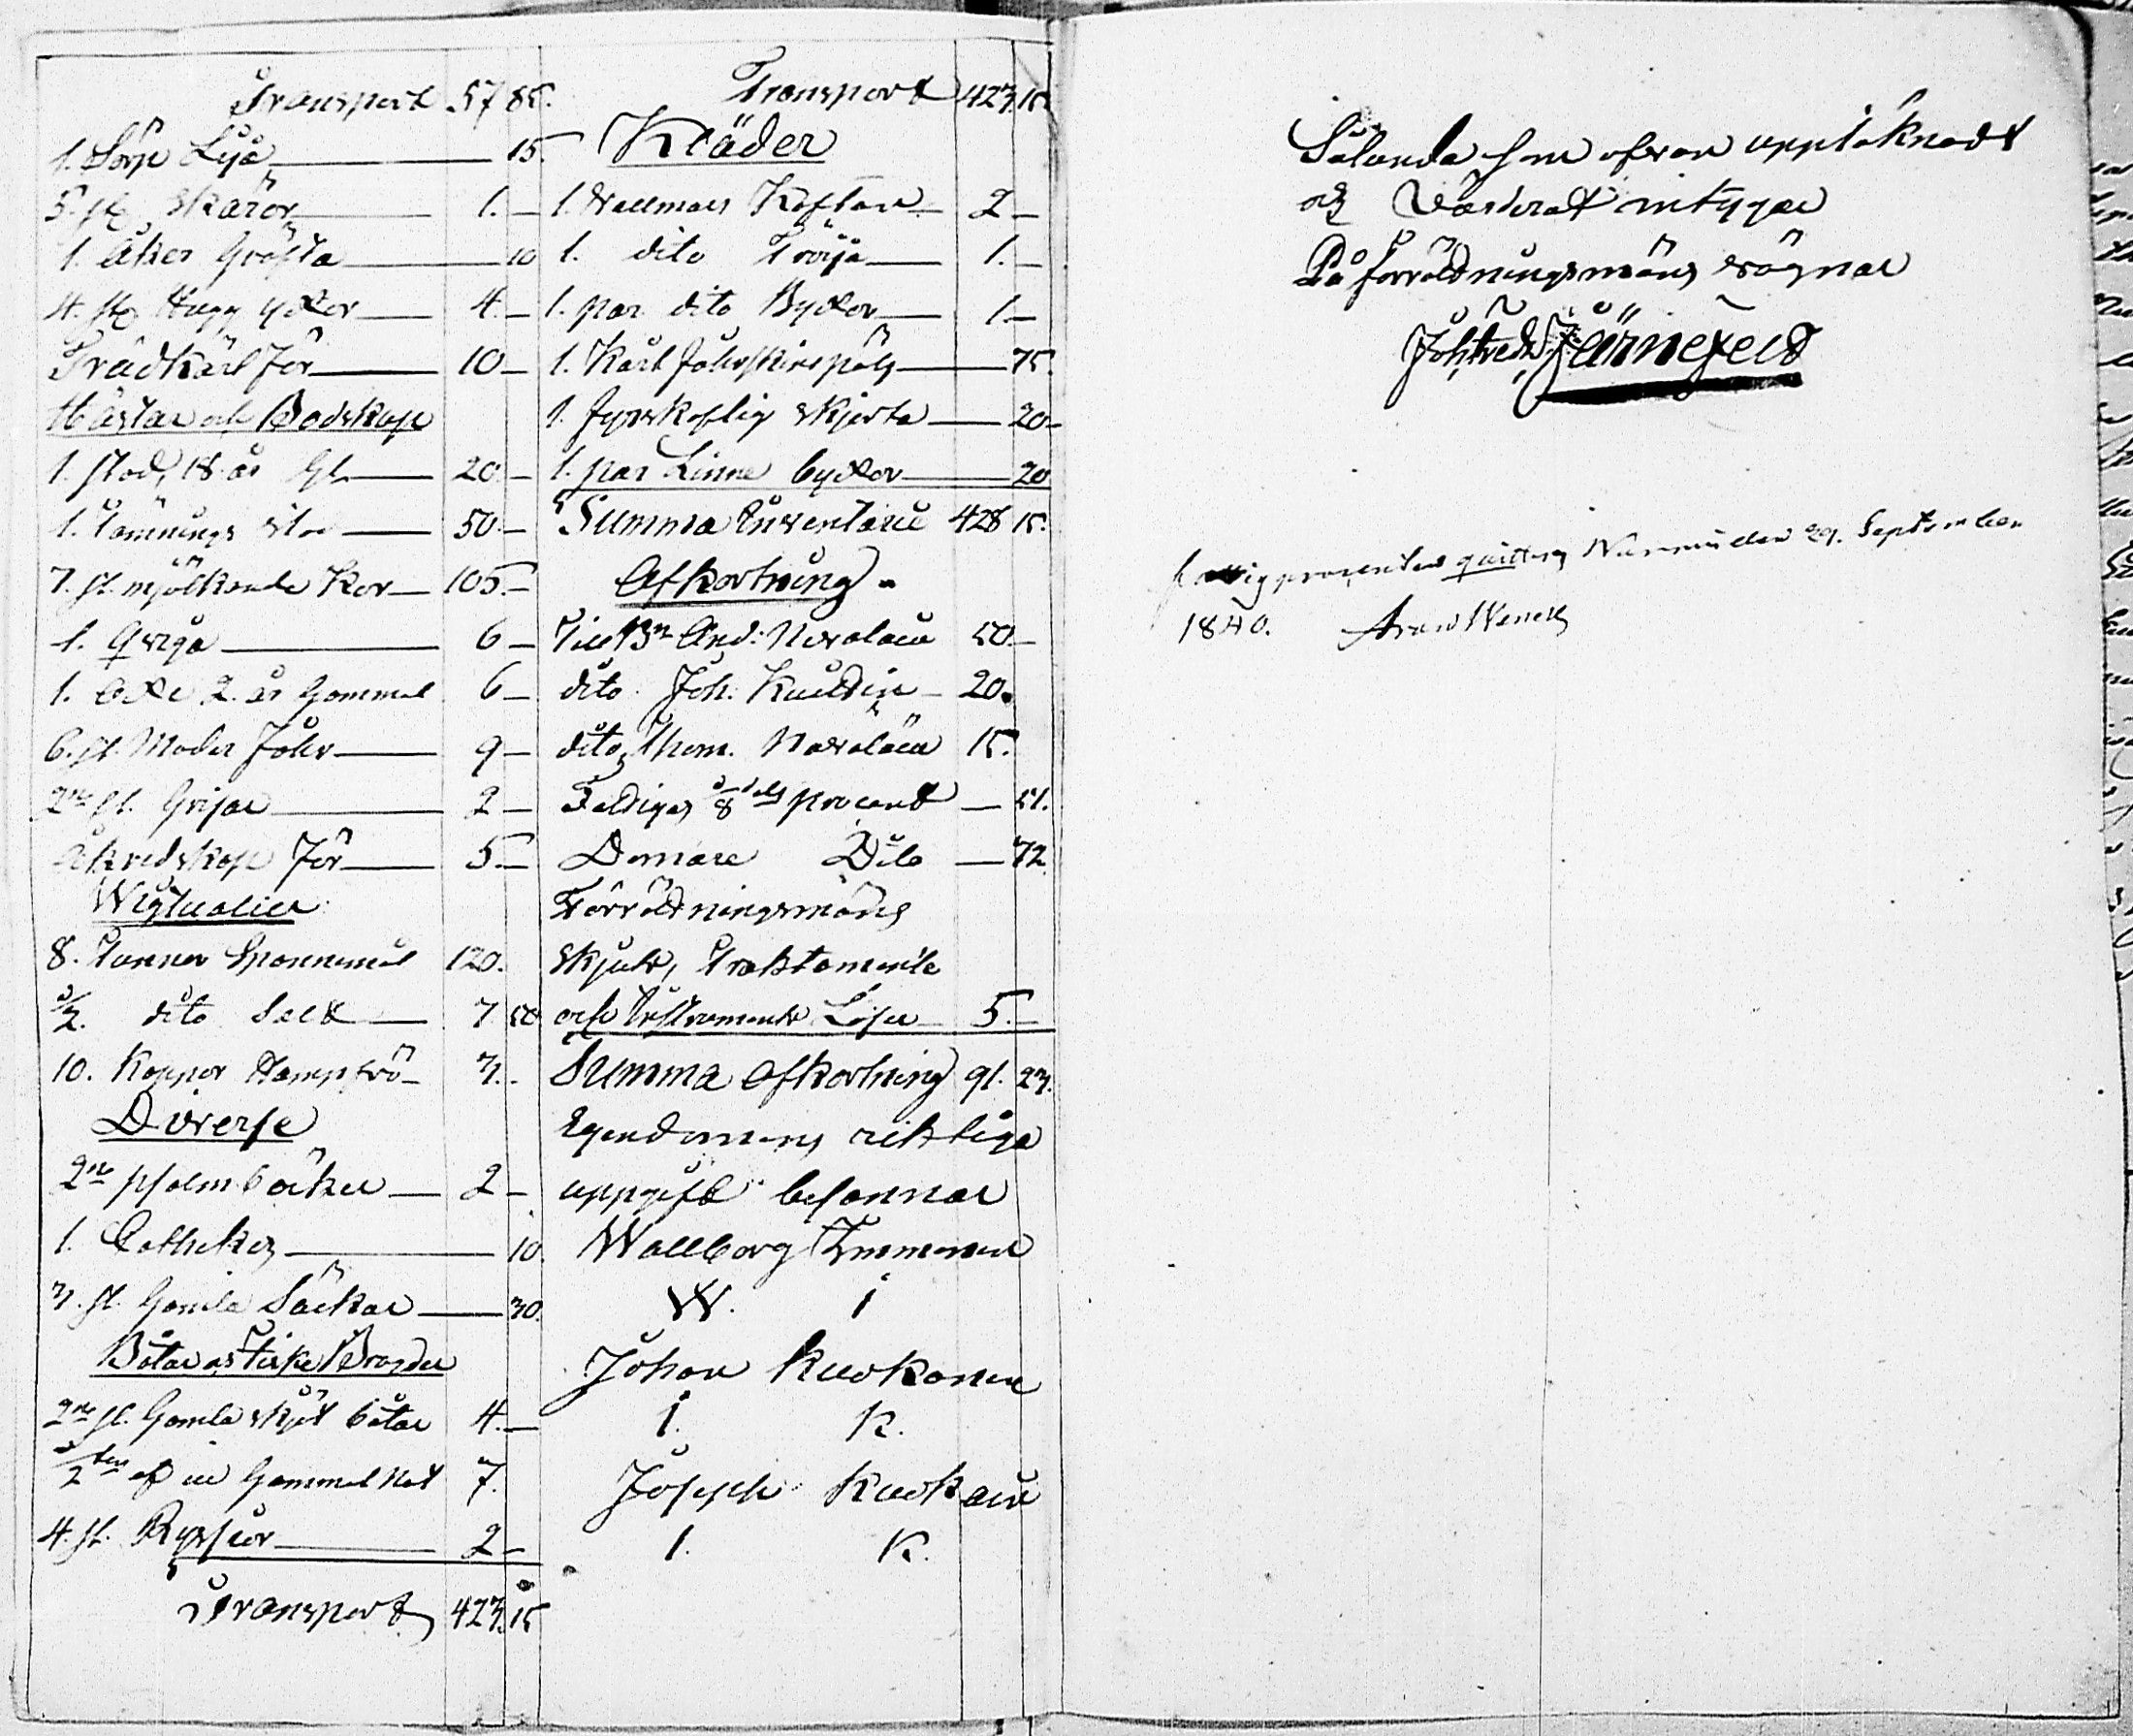 Transport 57 85.
1. Sörp Lya 15.
5. st. Skäror 1.—
1. Åker Gräfta 10
4. st. Hugg yxor 4.—
Trädkärl för 10—
Hästar och Bodskap
1. stod, 18 år Gl. 20.—
1. Tämnings sto 50.—
7. st. mjölkande Kor 105.—
1. Qviga 6—
1. Oxe 2. år Gammal 6—
6. st. Moder Fåhr 9—
2ne st. Grisar 2—
Åkredskap för 5.—
Wigtualier
8. Tunnor Spannemål 120.
1/2. dito Salt 7 50
10. Kappor Hampfrö 3.-
Diverse
2ne psalmböcker 2—
1. Cathekes 10.
3. st. Gamla Säckar 30.
Båtar och Fiske Bragder
2ne st. Gamla skjöt båtar 4.—
1/2 ten af en Gammal Not 7.
4. st. Ryssior 2—
Transport 423. 15
Transport 423. 15
Kläder
1. Wallmars Kaftan 2—
1. dito Tröija 1.—
1. par dito Byxor 1.—
1. Karl Fåhrskins päls 75.
1. Fyrskaftig skjorta 20-
1. par Linne byxor 20
Summa Inventarie 428 15.
Afkortning.
Till Bn And: Navalain 50.—
dito Joh. Kuildin 20.
dito Thom. Navalain 15.
Fattiges 1/8 dels procent — 51.
Domare Dito — 72
Förrättningsmäns
Skjuts, Traktamente
och Instruments Lösen 5.—
Summa afkortning 91. 23.
Egendomens riktiga
uppgift besannar
Wallborg Immonen
W. i
Johan Kuokanen
I. K.
Joseph Kuokain
I. K.
Sålunda som ofvan upptäknadt
och Värderat intygar
På förrättningsmäns vägnar
Joh: Fredr: Järnefelt
fattigprocenten quitteras Nurmis den 29. September
1840.